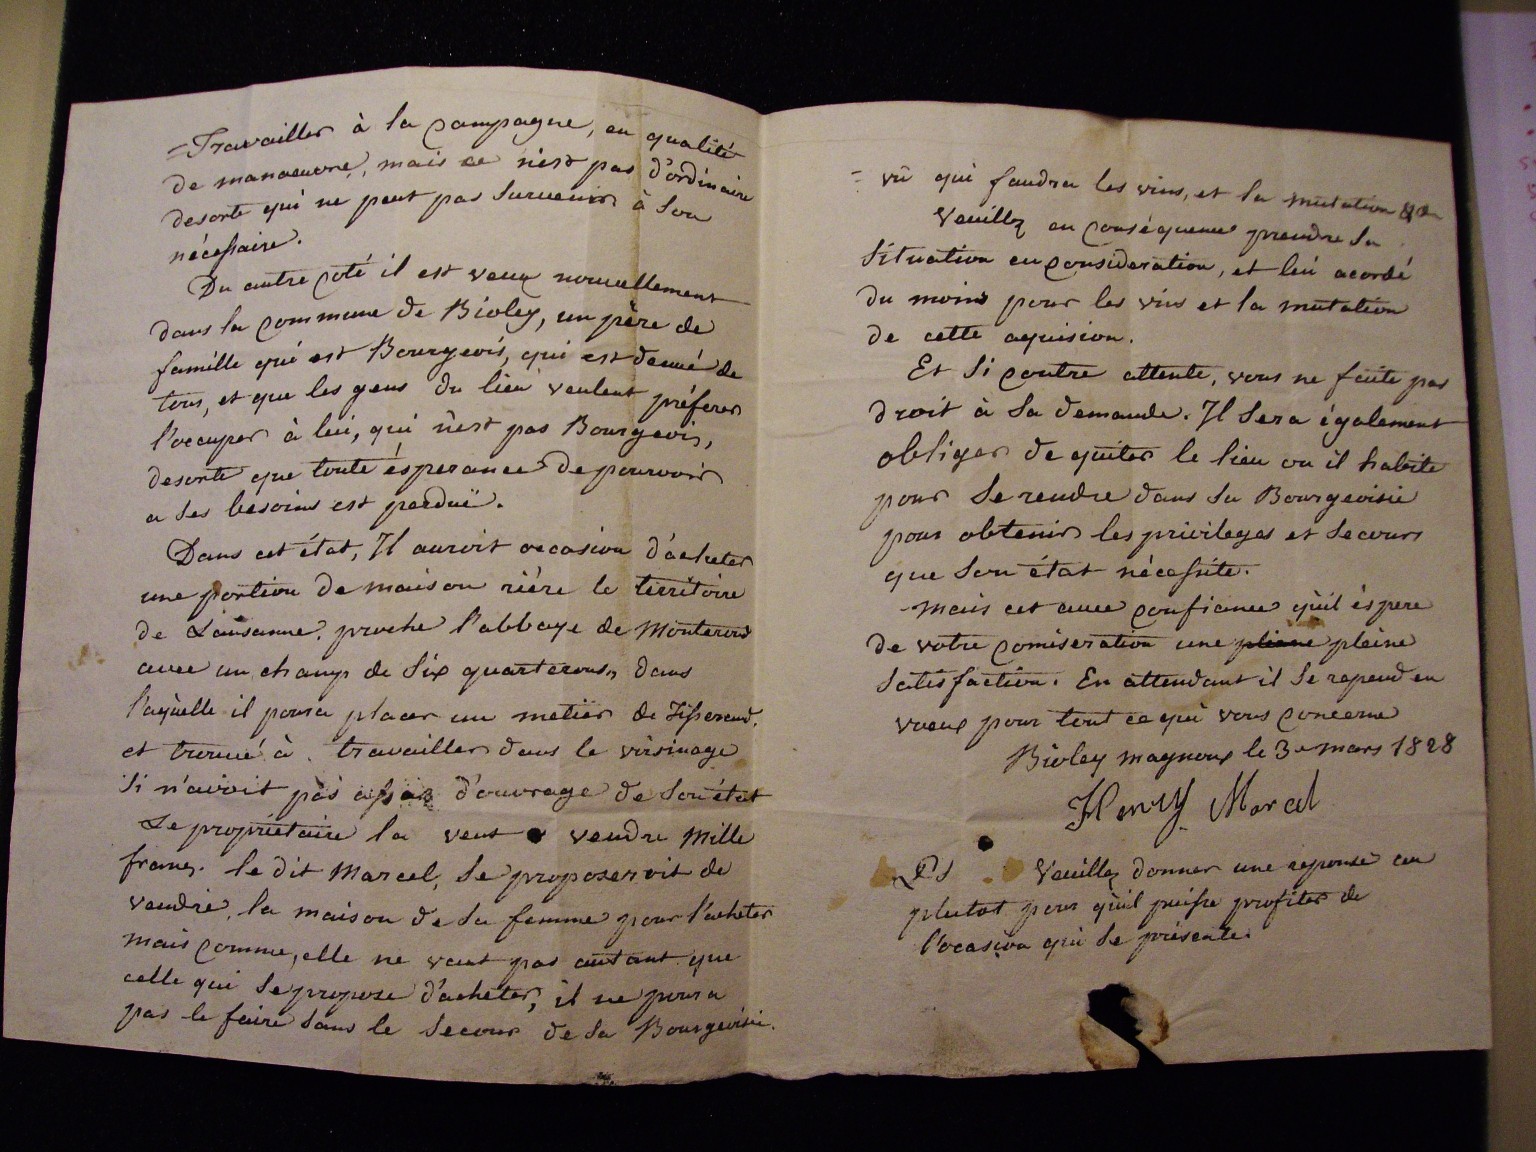 =Travailler à la Campagne, en qualité
de manoeuvre, mais ce n'est pas d'ordinaire
desorte qui ne peut pas survenir à Son
nécessaire.
Du autre coté il est venu nouvellement
dans la Commune de Bioley, un père de
famille qui est Bourgeois, qui est denué de
tous, et que les gens du lieu veulent préferer
l'occuper à lui, qui n'est pas Bourgeois,
desorte que toute ésperance de pourvoir
a Ses besoins est perduë.
Dans cet état, Il auroit occasion d'acheter
une portion de maison riére le territoire
de Lausanne, proche l'abbaye de Montheron
avec un champ de Six quarterons, dans
l'aquelle il poura placer un metier de Tisserand,
et trouvé à travailler dans le voisinage
Si n'avoit pas assez d'ouvrage de Son état
Le propriétaire la veut vendre Mille
francs. le dit Marcel, Se proposeroit de
vendre, la maison de Sa femme pour l'acheter
mais comme, elle ne vaut pas autant que
celle qui Se propose d'acheter, il ne poura
pas le faire Sans le Secour de Sa Bourgeoisie.
= vû qui faudra les vins, et la mutation
Veuillez en Conséquence prendre Sa
Situation en Consideration, et lui acordé
du moins pour les vins et la mutation
de cette aquision.
Et Si Contre attente, vous ne faite pas
droit à Sa demande. Il Sera également
obliger de quiter le lieu ou il habite
pour Se rendre dans Sa Bourgeoisie
pour obtenir les privileges et Secours
que Son état nécessite.
Mais cet avec Confiance qu'il éspere
de votre Comiseration une pliene pleine
Satisfaction. En attendant il Se repend en
voeux pour tout ce qui vous Concerne
Bioley magnoux le 3e mars 1828
Henry Marcel
PS Veuillez donner une reponse au
plutot pour qu'il puisse profiter de
l'ocasion qui Se présente.